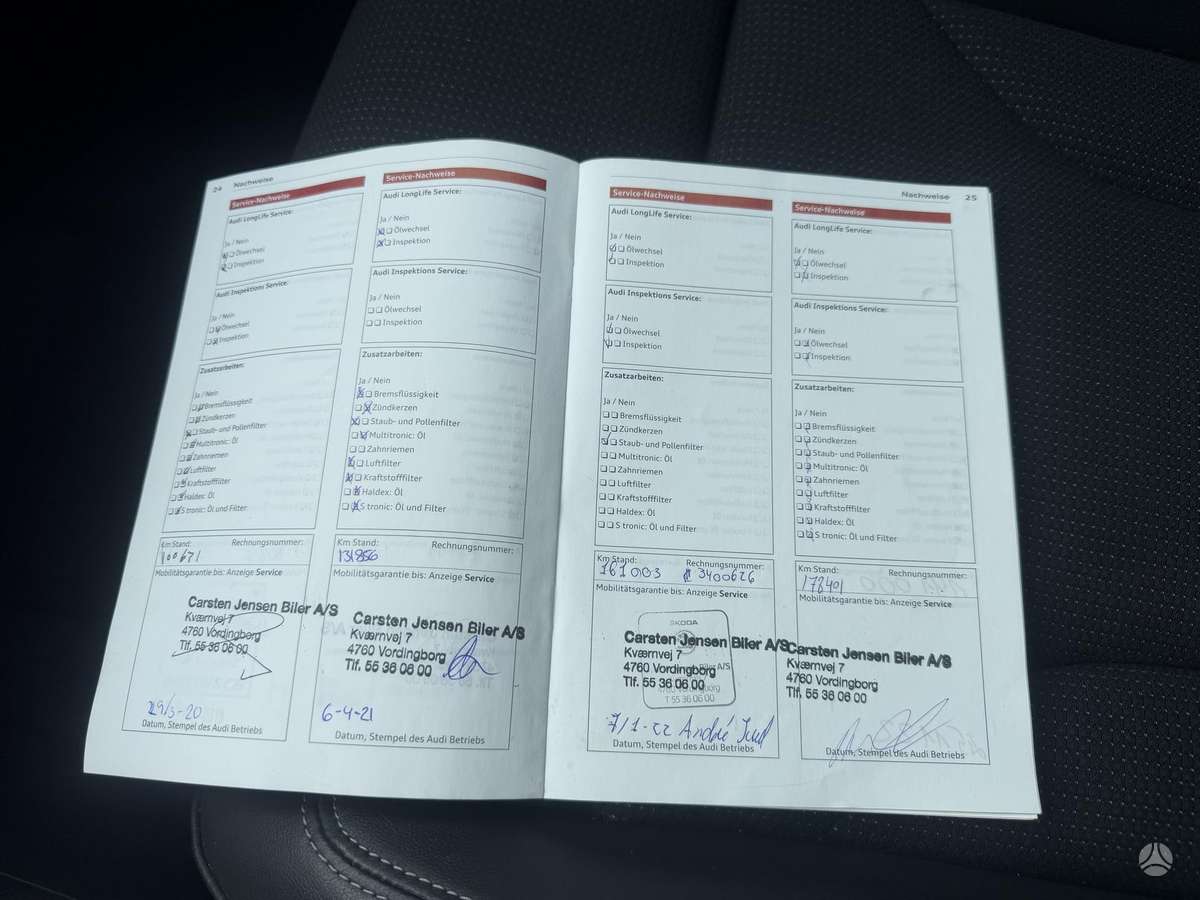 24 Nachweise
Service-Nachweise
Audi LongLife Service:
Ja / Nein
Ölwechsel
Inspektion
Audi Inspektions Service:
Ja / Nein
Ölwechsel
Inspektion
Zusatzarbeiten:
Ja / Nein
Bremsflüssigkeit
Zündkerzen
Staub- und Pollenfilter
Multitronic: Öl
Zahnriemen
Luftfilter
Kraftstofffilter
Haldex: Öl
S tronic: Öl und Filter
Km Stand: Rechnungsnummer:
100671
Mobilitätsgarantie bis: Anzeige Service
Carsten Jensen Biler A/S
Kværnvej 7
4760 Vordingborg
Tlf. 55 36 06 00
19/3-20
Datum, Stempel des Audi Betriebs
Service-Nachweise
Audi LongLife Service:
Ja / Nein
Ölwechsel
Inspektion
Audi Inspektions Service:
Ja / Nein
Ölwechsel
Inspektion
Zusatzarbeiten:
Ja / Nein
Bremsflüssigkeit
Zündkerzen
Staub- und Pollenfilter
Multitronic: Öl
Zahnriemen
Luftfilter
Kraftstofffilter
Haldex: Öl
S tronic: Öl und Filter
Km Stand: Rechnungsnummer:
131856
Mobilitätsgarantie bis: Anzeige Service
Carsten Jensen Biler A/S
Kværnvej 7
4760 Vordingborg
Tlf. 55 36 06 00
6-4-21
Datum, Stempel des Audi Betriebs
Nachweise 25
Service-Nachweise
Audi LongLife Service:
Ja / Nein
Ölwechsel
Inspektion
Audi Inspektions Service:
Ja / Nein
Ölwechsel
Inspektion
Zusatzarbeiten:
Ja / Nein
Bremsflüssigkeit
Zündkerzen
Staub- und Pollenfilter
Multitronic: Öl
Zahnriemen
Luftfilter
Kraftstofffilter
Haldex: Öl
S tronic: Öl und Filter
Km Stand: Rechnungsnummer:
161003 3400626
Mobilitätsgarantie bis: Anzeige Service
SKODA
Carsten Jensen Biler A/S
Kværnvej 7
4760 Vordingborg
Tlf. 55 36 06 00
T 55 36 06 00
7/1-22 André
Datum, Stempel des Audi Betriebs
Service-Nachweise
Audi LongLife Service:
Ja / Nein
Ölwechsel
Inspektion
Audi Inspektions Service:
Ja / Nein
Ölwechsel
Inspektion
Zusatzarbeiten:
Ja / Nein
Bremsflüssigkeit
Zündkerzen
Staub- und Pollenfilter
Multitronic: Öl
Zahnriemen
Luftfilter
Kraftstofffilter
Haldex: Öl
S tronic: Öl und Filter
Km Stand: Rechnungsnummer:
178401
Mobilitätsgarantie bis: Anzeige Service
Carsten Jensen Biler A/S
Kværnvej 7
4760 Vordingborg
Tlf. 55 36 06 00
Datum, Stempel des Audi Betriebs